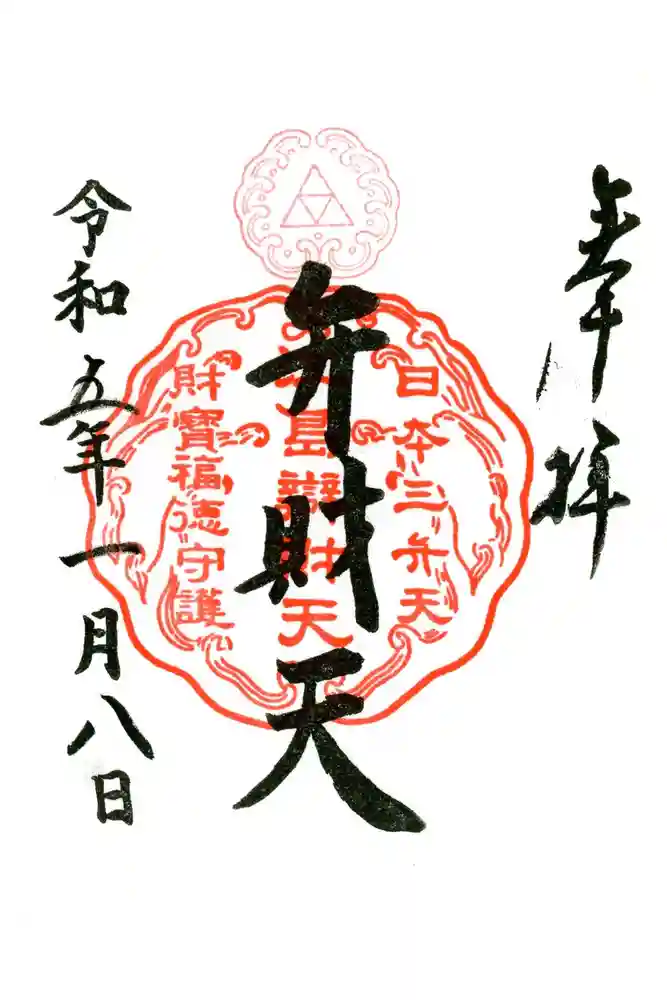 奉拝
日本三弁天
弁財天
島辯財天
財寶福徳守護
令和五年一月八日